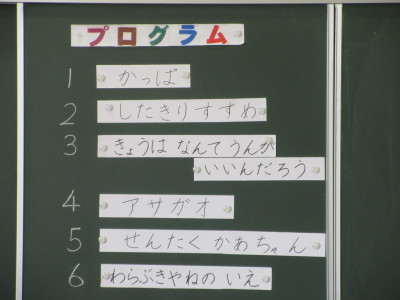 プログラム
1 かっぱ
2 したきりすずめ
3 きょうは なんて うんが
いいんだろう
4 アサガオ
5 せんたく かあちゃん
6 わらぶきやねの いえ